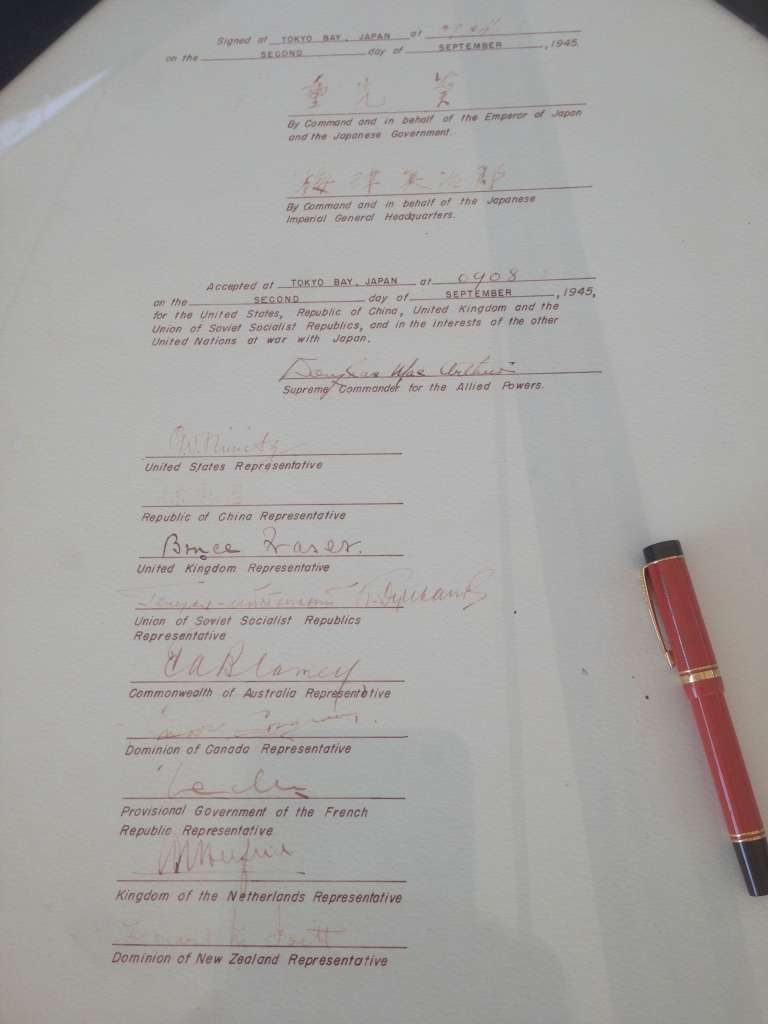 Signed at TOKYO BAY, JAPAN at
on the SECOND day of SEPTEMBER, 1945.
重光葵
By Command and in behalf of the Emperor of Japan
and the Japanese Government.
梅津美治郎
By Command and in behalf of the Japanese
Imperial General Headquarters.
Accepted at TOKYO BAY, JAPAN at 0908
on the SECOND day of SEPTEMBER, 1945,
for the United States, Republic of China, United Kingdom and the
Union of Soviet Socialist Republics, and in the interests of the other
United Nations at war with Japan.
Douglas MacArthur
Supreme Commander for the Allied Powers.
C.W. Nimitz
United States Representative
Republic of China Representative
Bruce Fraser.
United Kingdom Representative
Union of Soviet Socialist Republics
Representative
T.A. Blamey
Commonwealth of Australia Representative
Dominion of Canada Representative
Provisional Government of the French
Republic Representative
Kingdom of the Netherlands Representative
Dominion of New Zealand Representative